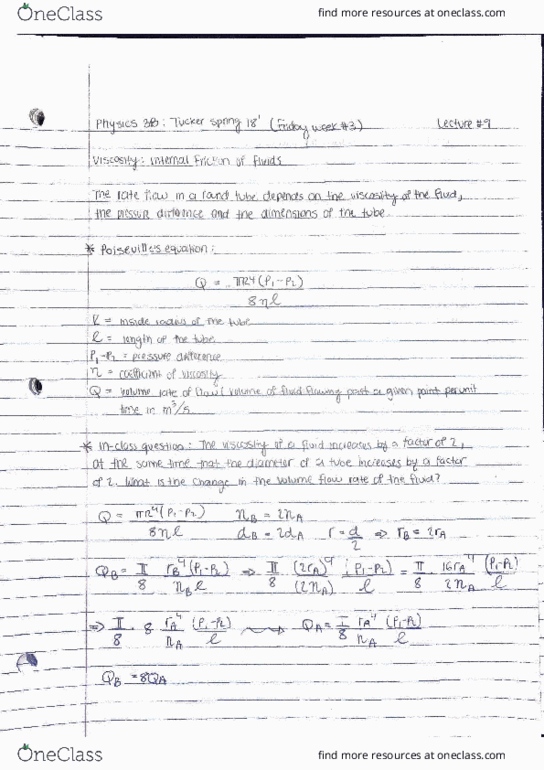 OneClass find more resources at oneclass.com
Physics 3B: Tucker spring 18' (Friday week #3) Lecture #9
Viscosity: internal friction of fluids
The rate flow in a round tube depends on the viscosity of the fluid,
the pressure difference and the dimensions of the tube
* Poiseuille's equation:
Q = πR⁴(P₁-P₂)
8ηl
R = inside radius of the tube
l = length of the tube
P₁-P₂ = pressure difference
η = coefficient of viscosity
Q = volume rate of flow (volume of fluid flowing past a given point per unit
time in m³/s
* In-class question: The viscosity of a fluid increases by a factor of 2,
at the same time that the diameter of a tube increases by a factor
of 2. What is the change in the volume flow rate of the fluid?
Q = πR⁴(P₁-P₂) / 8ηl η_B = 2η_A
d_B = 2d_A r = d/2 ⇒ r_B = 2r_A
Q_B = π/8 r_B⁴(P₁-P₂) / η_B l ⇒ π/8 (2r_A)⁴/(2η_A) · (P₁-P₂)/l = π/8 16r_A⁴/2η_A (P₁-P₂)/l
⇒ π/8 · 8 r_A⁴/η_A (P₁-P₂)/l Q_A = π/8 r_A⁴/η_A (P₁-P₂)/l
Q_B = 8Q_A
OneClass find more resources at oneclass.com